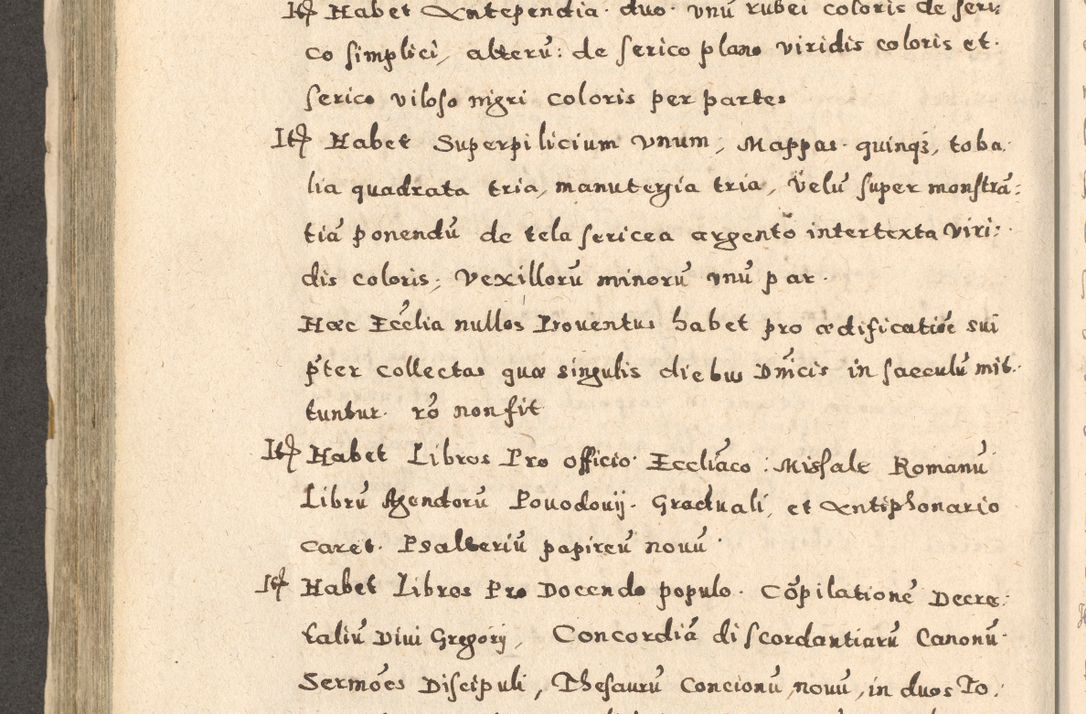 Itȩ Habet Antependia duo unũ rubei coloris de seri:
co simplici, alterũ: de serico plano viridis coloris et
serico viloso nigri coloris per partes
Itȩ Habet Superpilicium vnum, Mappas quinqȝ, toba:
lia quadrata tria, manutergia tria, velũ super monstrã:
tiã ponendũ de tela sericea argento intertexta viri:
dis coloris; Vexillorũ minorũ vnũ par.
Hæc Eccłia nullos Prouentus habet pro ædificatiõe sui
p̃ter collectas quæ singulis diebus Dñicis in saeculũ mit:
tuntur. rõ non fit
Itȩ Habet Libros Pro officio Eccliãco: Missale Romanũ
Librũ Agendorũ Pouodouij. Graduali, et Antiphonario
caret. Psalteriũ papireũ nouũ
Itȩ Habet Libros Pro Docendo populo. Cõpilationẽ Decre:
taliũ Diui Gregorij, Concordiã discordantiarũ Canonũ
Sermões Discipuli, Thesaurũ Concionũ nouũ, in duos To: